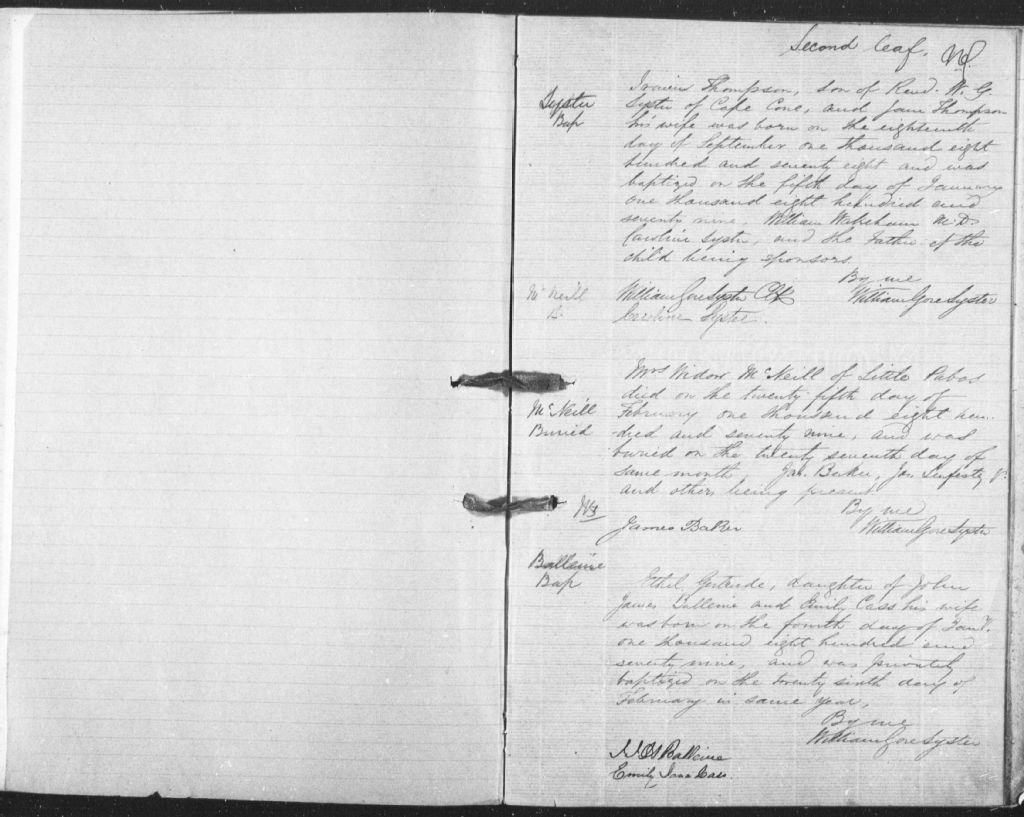 Second leaf.
Lyster
Bap
Thompson, Son of Revd. W. G.
Lyster of Cape Cove, and Jane Thompson
his wife was born on the eighteenth
day of September one thousand eight
hundred and seventy eight and was
baptized on the fifth day of January
one thousand eight hundred and
seventy nine, William Wakeham M.D.
Caroline Lyster, and the Father of the
child being sponsors.
By me
McNeill
William Gore Lyster Clk William Gore Lyster
Caroline Lyster.
Mrs Widow McNeill of Little Pabos
died on the twenty fifth day of
McNeill
Buried
February one thousand eight hun-
dred and seventy nine, and was
buried on the twenty seventh day of
same month, Jas. Baker, Jon.
and others being present.
By me
James Baker William Gore Lyster
Balleine
Bap
Ethel Gertrude, daughter of John
James Balleine and Emily Cass his wife
was born on the fourth day of Jany.
one thousand eight hundred and
seventy nine, and was privately
baptized on the twenty sixth day of
February in same year,
By me
William Gore Lyster
Balleine
Emily Cass.